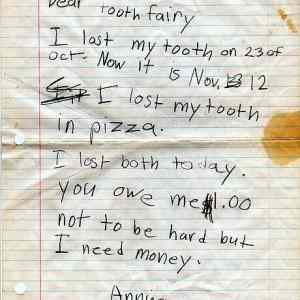 Dear Tooth fairy
I lost my tooth on 23 of
oct. Now it is Nov. 12
I lost my tooth
in pizza.
I lost both today.
you owe me $1.00
not to be hard but
I need money.